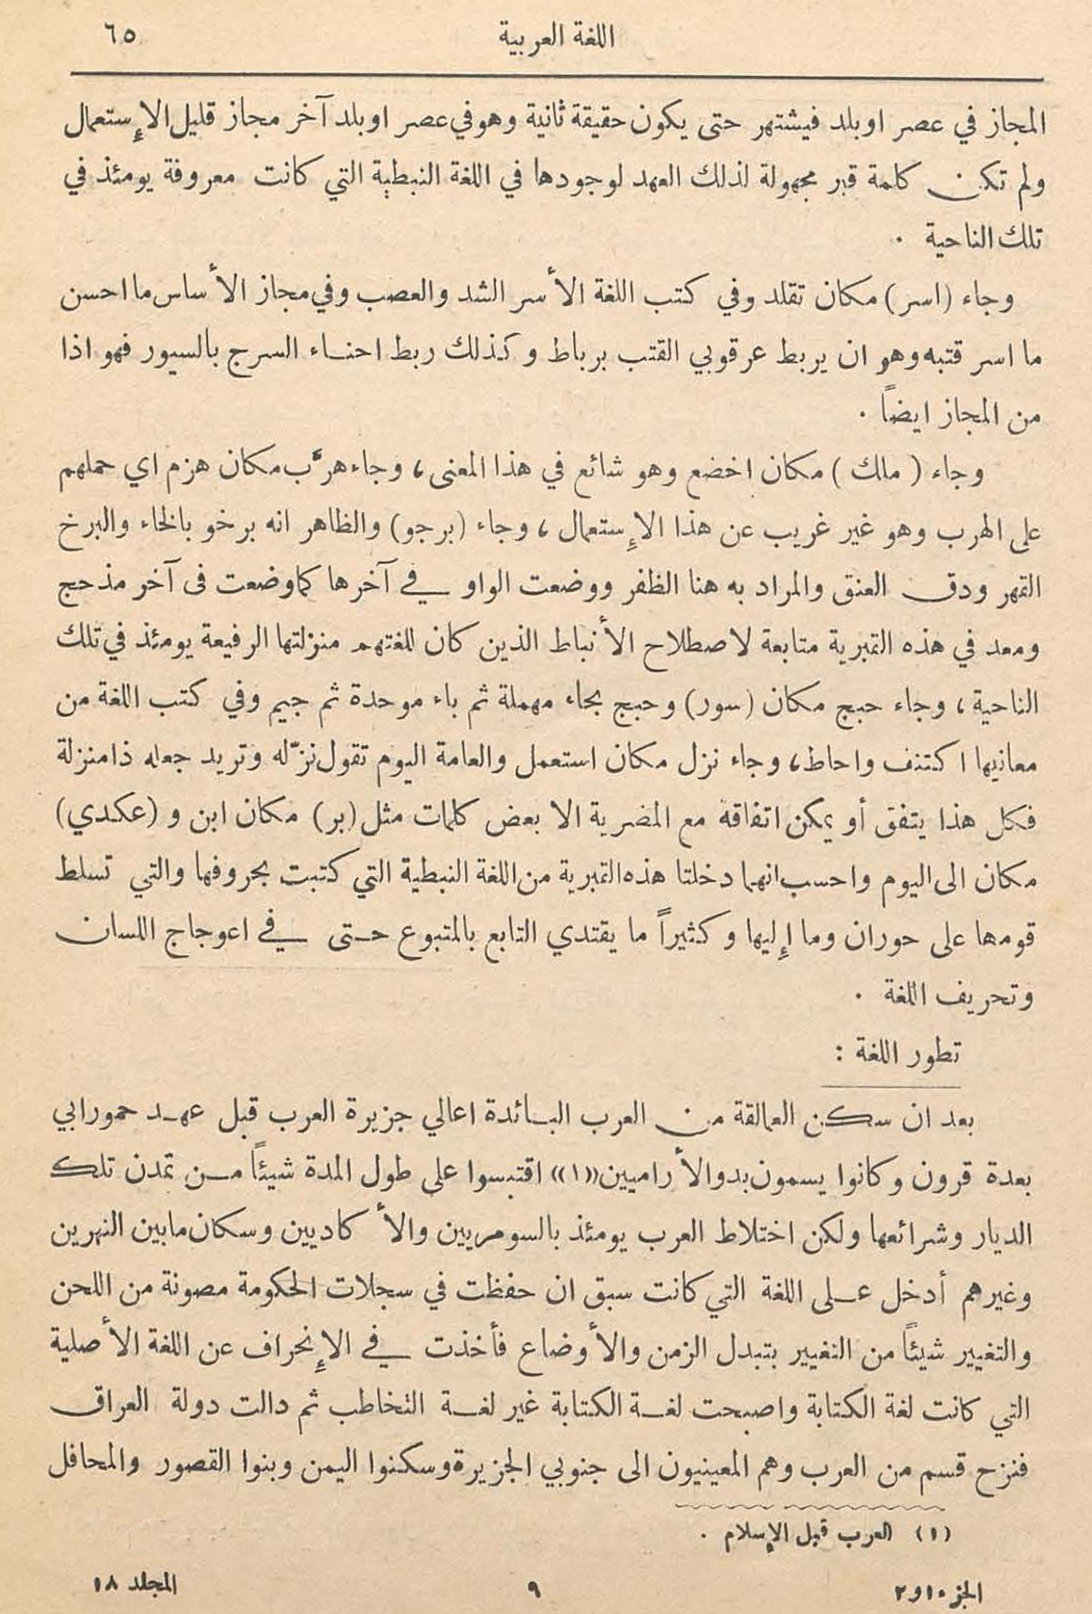 اللغة العربية ٦٥
المجاز في عصر او بلد فيشتهر حتى يكون حقيقة ثانية وهو في عصر او بلد آخر مجاز قليل الإستعمال
ولم تكن كلمة قبر مجهولة لذلك العهد لوجودها في اللغة النبطية التي كانت معروفة يومئذ في
تلك الناحية .
وجاء (اسر) مكان تقلد وفي كتب اللغة الأسر الشد والعصب وفي مجاز الأساس ما احسن
ما اسر قتبه وهو ان يربط عرقوبي القتب برباط وكذلك ربط احناء السرج بالسيور فهو اذا
من المجاز ايضاً .
وجاء ( ملك ) مكان اخضع وهو شائع في هذا المعنى ، وجاء هرّب مكان هزم اي حملهم
على الهرب وهو غير غريب عن هذا الإستعمال ، وجاء (برجو) والظاهر انه برخو بالخاء والبرخ
القهر ودق العنق والمراد به هنا الظفر ووضعت الواو في آخرها كما وضعت في آخر مذحج
ومعد في هذه القبرية متابعة لاصطلاح الأنباط الذين كان للغتهم منزلتها الرفيعة يومئذ في تلك
الناحية ، وجاء حبج مكان (سور) وحبج بحاء مهملة ثم باء موحدة ثم جيم وفي كتب اللغة من
معانيها اكتنف واحاط ، وجاء نزل مكان استعمل والعامة اليوم تقول نزّله وتريد جعله ذا منزلة
فكل هذا يتفق أو يمكن اتفاقه مع المضرية الا بعض كلمات مثل (بر) مكان ابن و (عكدي)
مكان الى اليوم واحسب انهما دخلتا هذه القبرية من اللغة النبطية التي كتبت بحروفها والتي تسلط
قومها على حوران وما إليها وكثيراً ما يقتدي التابع بالمتبوع حتى في اعوجاج اللسان
وتحريف اللغة .
تطور اللغة :
بعد ان سكن العمالقة من العرب البائدة اعالي جزيرة العرب قبل عهد حمورابي
بعدة قرون وكانوا يسمون بدو الأراميين «(١)» اقتبسوا على طول المدة شيئاً من تمدن تلك
الديار وشرائعها ولكن اختلاط العرب يومئذ بالسومريين والأكاديين وسكان ما بين النهرين
وغيرهم أدخل على اللغة التي كانت سبق ان حفظت في سجلات الحكومة مصونة من اللحن
والتغيير شيئاً من التغيير بتبدل الزمن والأوضاع فأخذت في الإنحراف عن اللغة الأصلية
التي كانت لغة الكتابة واصبحت لغة الكتابة غير لغة التخاطب ثم دالت دولة العراق
فنزح قسم من العرب وهم المعينيون الى جنوبي الجزيرة وسكنوا اليمن وبنوا القصور والمحافل
(١) العرب قبل الإسلام .
الجزء ١ و ٢ ٩ المجلد ١٨